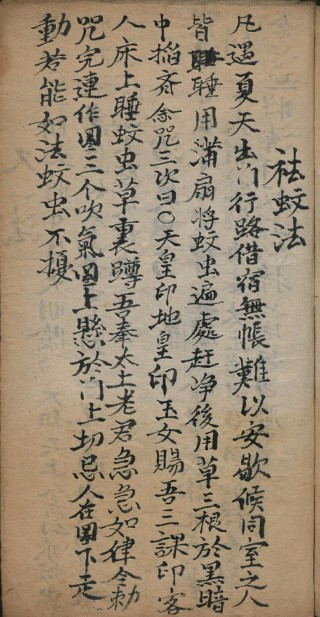 祛蚊法
凡遇夏天出門行路借宿無帳難以安歇候同室之人
皆睡用蒲扇將蚊虫遍處赶净後用草三根於黑暗
中掐斉念咒三次曰〇天皇印地皇印玉女賜吾三課印客
人床上睡蚊虫草裏蹲吾奉太上老君急急如律令勅
咒完連作圈三个吹氣圈上懸於门上切忌人在圈下走
動若能如法蚊虫不擾